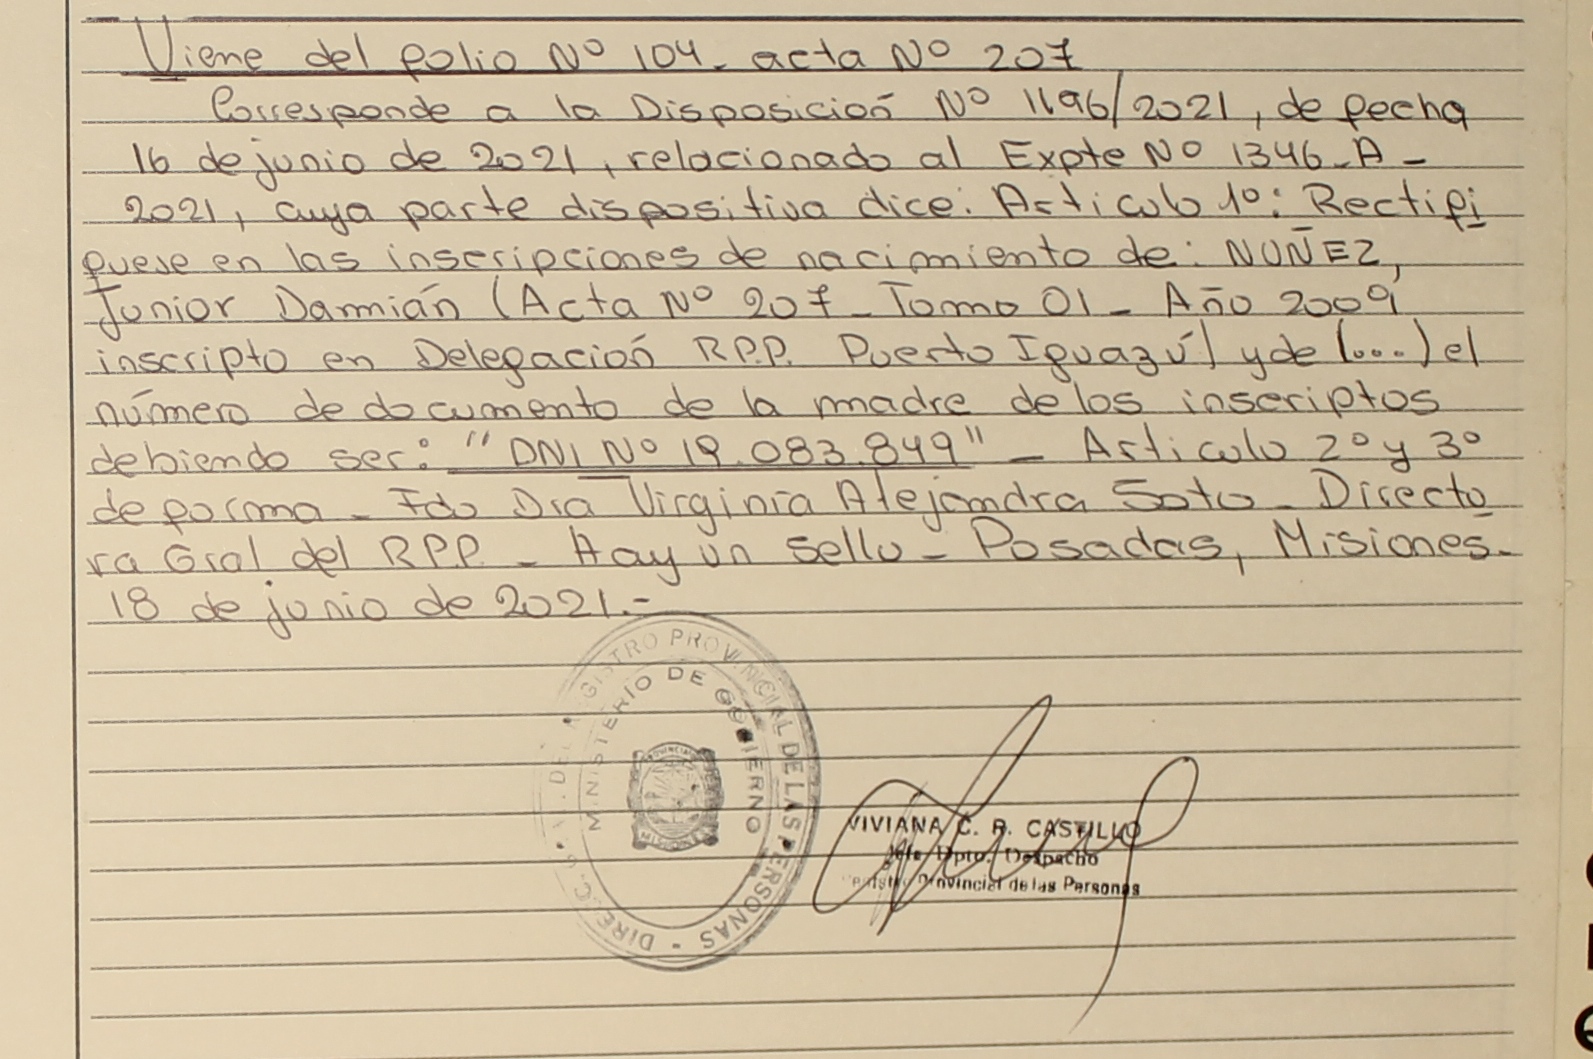 Viene del folio Nº 104 - acta Nº 207
Corresponde a la Disposición Nº 1696/2021, de fecha
16 de junio de 2021, relacionado al Expte Nº 1346-A-
2021, cuya parte dispositiva dice: Articulo 1º: Rectifi
quese en las inscripciones de nacimiento de: NUÑEZ,
Junior Damián (Acta Nº 207 - Tomo 01 - Año 2009,
inscripto en Delegación R.P.P. Puerto Iguazú) y de (...) el
número de documento de la madre de los inscriptos
debiendo ser: "DNI Nº 19.083.849" - Articulo 2º y 3º
de forma - Fdo Dra Virginia Alejandra Soto - Directo
ra Gral del R.P.P. - Hay un sello - Posadas, Misiones -
18 de junio de 2021.-
DIREC. GRAL. DEL REGISTRO PROVINCIAL DE LAS PERSONAS -
MINISTERIO DE GOBIERNO
PROVINCIA
MISIONES
VIVIANA C. R. CASTILLO
Jefe Dpto. Despacho
Registro Provincial de las Personas